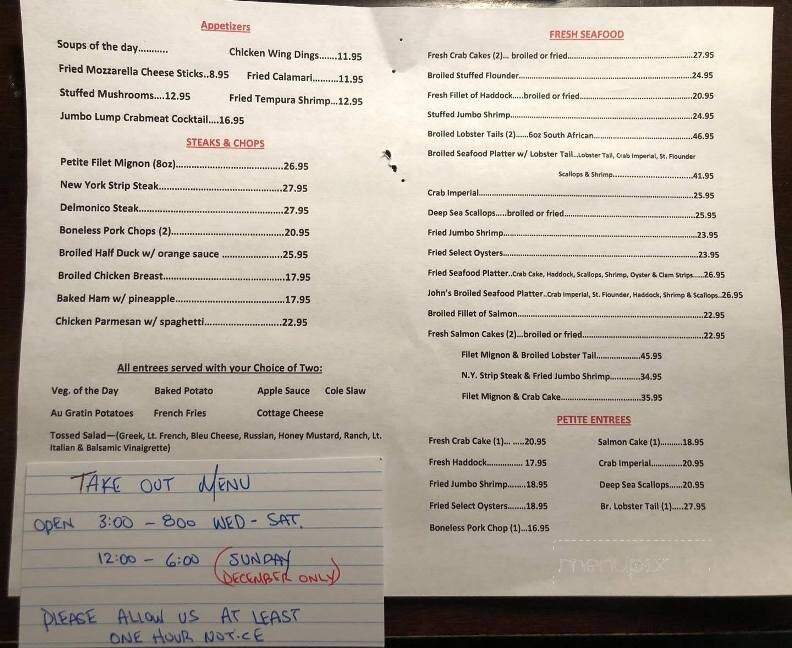 Appetizers
Soups of the day...........
Chicken Wing Dings.......11.95
Fried Mozzarella Cheese Sticks..8.95 Fried Calamari..........11.95
Stuffed Mushrooms....12.95 Fried Tempura Shrimp...12.95
Jumbo Lump Crabmeat Cocktail....16.95
STEAKS & CHOPS
Petite Filet Mignon (8oz)....................................26.95
New York Strip Steak.........................................27.95
Delmonico Steak................................................27.95
Boneless Pork Chops (2)......................................20.95
Broiled Half Duck w/ orange sauce ....................25.95
Broiled Chicken Breast........................................17.95
Baked Ham w/ pineapple....................................17.95
Chicken Parmesan w/ spaghetti..........................22.95
All entrees served with your Choice of Two:
Veg. of the Day Baked Potato Apple Sauce Cole Slaw
Au Gratin Potatoes French Fries Cottage Cheese
Tossed Salad—(Greek, Lt. French, Bleu Cheese, Russian, Honey Mustard, Ranch, Lt.
Italian & Balsamic Vinaigrette)
TAKE OUT MENU
OPEN 3:00 - 800 WED - SAT.
12:00 - 6:00 (SUNDAY
DECEMBER ONLY)
PLEASE ALLOW US AT LEAST
ONE HOUR NOTICE
FRESH SEAFOOD
Fresh Crab Cakes (2)... broiled or fried..................................................27.95
Broiled Stuffed Flounder....................................................................24.95
Fresh Fillet of Haddock.....broiled or fried.............................................20.95
Stuffed Jumbo Shrimp.......................................................................24.95
Broiled Lobster Tails (2)......6oz South African.......................................46.95
Broiled Seafood Platter w/ Lobster Tail...Lobster Tail, Crab Imperial, St. Flounder
Scallops & Shrimp................................41.95
Crab Imperial.....................................................................................25.95
Deep Sea Scallops.....broiled or fried.....................................................25.95
Fried Jumbo Shrimp............................................................................23.95
Fried Select Oysters............................................................................23.95
Fried Seafood Platter..Crab Cake, Haddock, Scallops, Shrimp, Oyster & Clam Strips.....26.95
John's Broiled Seafood Platter..Crab Imperial, St. Flounder, Haddock, Shrimp & Scallops..26.95
Broiled Fillet of Salmon........................................................................22.95
Fresh Salmon Cakes (2)...broiled or fried................................................22.95
Filet Mignon & Broiled Lobster Tail..................45.95
N.Y. Strip Steak & Fried Jumbo Shrimp............34.95
Filet Mignon & Crab Cake...............................35.95
PETITE ENTREES
Fresh Crab Cake (1)... .....20.95 Salmon Cake (1).........18.95
Fresh Haddock............... 17.95 Crab Imperial...........20.95
Fried Jumbo Shrimp........18.95 Deep Sea Scallops......20.95
Fried Select Oysters........18.95 Br. Lobster Tail (1).....27.95
Boneless Pork Chop (1)...16.95
menupix